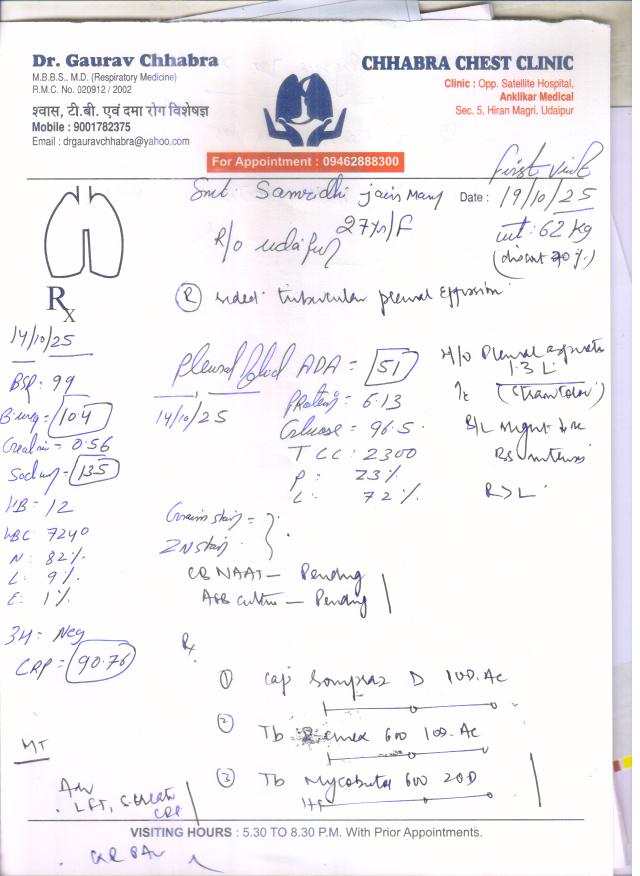 Dr. Gaurav Chhabra
M.B.B.S., M.D. (Respiratory Medicine)
R.M.C. No. 020912 / 2002
श्वास, टी.बी. एवं दमा रोग विशेषज्ञ
Mobile : 9001782375
Email : drgauravchhabra@yahoo.com
CHHABRA CHEST CLINIC
Clinic : Opp. Satellite Hospital,
Anklikar Medical
Sec. 5, Hiran Magri, Udaipur
For Appointment : 09462888300
First visit
Smt. Samridhi Jain
Date : 19/10/25
27 yrs/F
wt: 62 kg
R/o udaipur
Rx
(R) sided tubercular pleural effusion
14/10/25
BSP: 99
B urea = 10.4
Creatinine = 0.56
Sodium = 135
HB = 12
WBC: 7240
N: 82%
L: 9%
E: 1%
3H = Neg
CRP = 90.76
Pleural fluid ADA = 51
14/10/25
Protein = 6.13
Glucose = 96.5
TCC: 2300
P: 23%
L: 72%
H/o Pleural aspiration
1.3 L
(Straw color)
R>L
Gram stain =
ZN stain
CB NAAT - Pending
AFB culture - Pending
Rx
① Cap Sompraz D 1 OD. Ac
② Tb 600 1 OD. Ac
③ Tb Mycobutol 600 20D
MT
Adv
. LFT, S. Creat
CRP
VISITING HOURS : 5.30 TO 8.30 P.M. With Prior Appointments.